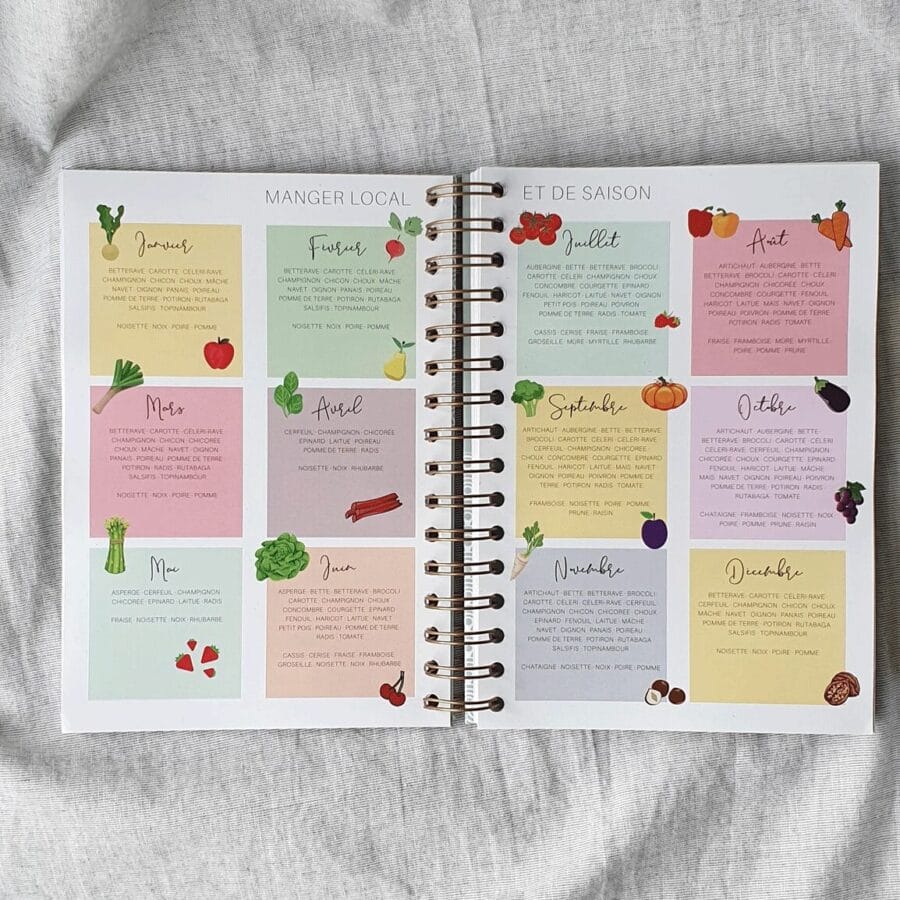 MANGER LOCAL
Janvier
BETTERAVE · CAROTTE · CÉLERI-RAVE
CHAMPIGNON · CHICON · CHOUX · MÂCHE
NAVET · OIGNON · PANAIS · POIREAU
POMME DE TERRE · POTIRON · RUTABAGA
SALSIFIS · TOPINAMBOUR
NOISETTE · NOIX · POIRE · POMME
Février
BETTERAVE · CAROTTE · CÉLERI-RAVE
CHAMPIGNON · CHICON · CHOUX · MÂCHE
NAVET · OIGNON · PANAIS · POIREAU
POMME DE TERRE · POTIRON · RUTABAGA
SALSIFIS · TOPINAMBOUR
NOISETTE · NOIX · POIRE · POMME
Mars
BETTERAVE · CAROTTE · CÉLERI-RAVE
CHAMPIGNON · CHICON · CHICORÉE
CHOUX · MÂCHE · NAVET · OIGNON
PANAIS · POIREAU · POMME DE TERRE
POTIRON · RADIS · RUTABAGA
SALSIFIS · TOPINAMBOUR
NOISETTE · NOIX · POIRE · POMME
Avril
CERFEUIL · CHAMPIGNON · CHICORÉE
EPINARD · LAITUE · POIREAU
POMME DE TERRE · RADIS
NOISETTE · NOIX · RHUBARBE
Mai
ASPERGE · CERFEUIL · CHAMPIGNON
CHICORÉE · EPINARD · LAITUE · RADIS
FRAISE · NOISETTE · NOIX · RHUBARBE
Juin
ASPERGE · BETTE · BETTERAVE · BROCOLI
CAROTTE · CHAMPIGNON · CHOUX
CONCOMBRE · COURGETTE · EPINARD
FENOUIL · HARICOT · LAITUE · NAVET
PETIT POIS · POIREAU · POMME DE TERRE
RADIS · TOMATE
CASSIS · CERISE · FRAISE · FRAMBOISE
GROSEILLE · NOISETTE · NOIX · RHUBARBE
ET DE SAISON
Juillet
AUBERGINE · BETTE · BETTERAVE · BROCOLI
CAROTTE · CÉLERI · CHAMPIGNON · CHOUX
CONCOMBRE · COURGETTE · EPINARD
FENOUIL · HARICOT · LAITUE · NAVET · OIGNON
PETIT POIS · POIREAU · POIVRON
POMME DE TERRE · RADIS · TOMATE
CASSIS · CERISE · FRAISE · FRAMBOISE
GROSEILLE · MÛRE · MYRTILLE · RHUBARBE
Août
ARTICHAUT · AUBERGINE · BETTE
BETTERAVE · BROCOLI · CAROTTE · CÉLERI
CHAMPIGNON · CHICORÉE · CHOUX
CONCOMBRE · COURGETTE · FENOUIL
HARICOT · LAITUE · MAÏS · NAVET · OIGNON
POIREAU · POIVRON · POMME DE TERRE
POTIRON · RADIS · TOMATE
FRAISE · FRAMBOISE · MÛRE · MYRTILLE
POIRE · POMME · PRUNE
Septembre
ARTICHAUT · AUBERGINE · BETTE · BETTERAVE
BROCOLI · CAROTTE · CÉLERI · CÉLERI-RAVE
CERFEUIL · CHAMPIGNON · CHICORÉE
CHOUX · CONCOMBRE · COURGETTE · EPINARD
FENOUIL · HARICOT · LAITUE · MAÏS · NAVET
OIGNON · POIREAU · POIVRON · POMME DE
TERRE · POTIRON · RADIS · TOMATE
FRAMBOISE · NOISETTE · POIRE · POMME
PRUNE · RAISIN
Octobre
ARTICHAUT · AUBERGINE · BETTE
BETTERAVE · BROCOLI · CAROTTE · CÉLERI
CÉLERI-RAVE · CERFEUIL · CHAMPIGNON
CHICORÉE · CHOUX · COURGETTE · EPINARD
FENOUIL · HARICOT · LAITUE · MÂCHE
MAÏS · NAVET · OIGNON · PANAIS · POIREAU
POMME DE TERRE · POTIRON · RADIS
RUTABAGA · TOMATE
CHATAIGNE · FRAMBOISE · NOISETTE · NOIX
POIRE · POMME · PRUNE · RAISIN
Novembre
ARTICHAUT · BETTE · BETTERAVE · BROCOLI
CAROTTE · CÉLERI · CÉLERI-RAVE · CERFEUIL
CHAMPIGNON · CHICON · CHICORÉE · CHOUX
EPINARD · FENOUIL · LAITUE · MÂCHE
NAVET · OIGNON · PANAIS · POIREAU
POMME DE TERRE · POTIRON · RUTABAGA
SALSIFIS · TOPINAMBOUR
CHATAIGNE · NOISETTE · NOIX · POIRE · POMME
Décembre
BETTERAVE · CAROTTE · CÉLERI-RAVE
CERFEUIL · CHAMPIGNON · CHICON · CHOUX
MÂCHE · NAVET · OIGNON · PANAIS · POIREAU
POMME DE TERRE · POTIRON · RUTABAGA
SALSIFIS · TOPINAMBOUR
NOISETTE · NOIX · POIRE · POMME